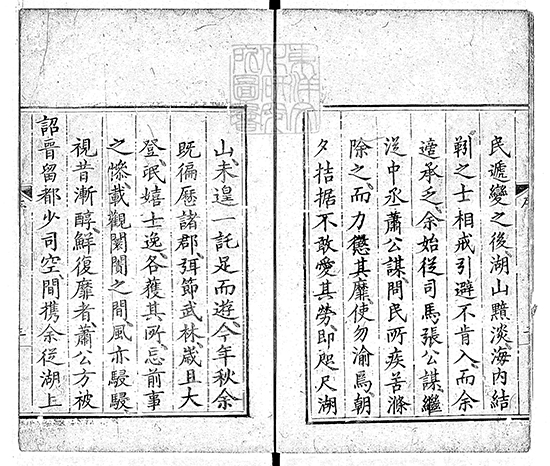 民遞變之後湖山黯淡海内結
靷之士相戒引避不肯入而余
適承乏余始從司馬張公謀繼
從中丞蕭公謀問民所疾苦滌
除之而力懲其靡使勿渝焉朝
夕拮据不敢愛其勞即咫尺湖
山未遑一託足而遊今年秋余
既徧歷諸郡弭節武林歲且大
登民嬉士逸各獲其所忘前事
之慘載觀闤闠之間風亦駸駸
視昔漸醇鮮復靡者蕭公方被
詔晋留都少司空間攜余從湖上